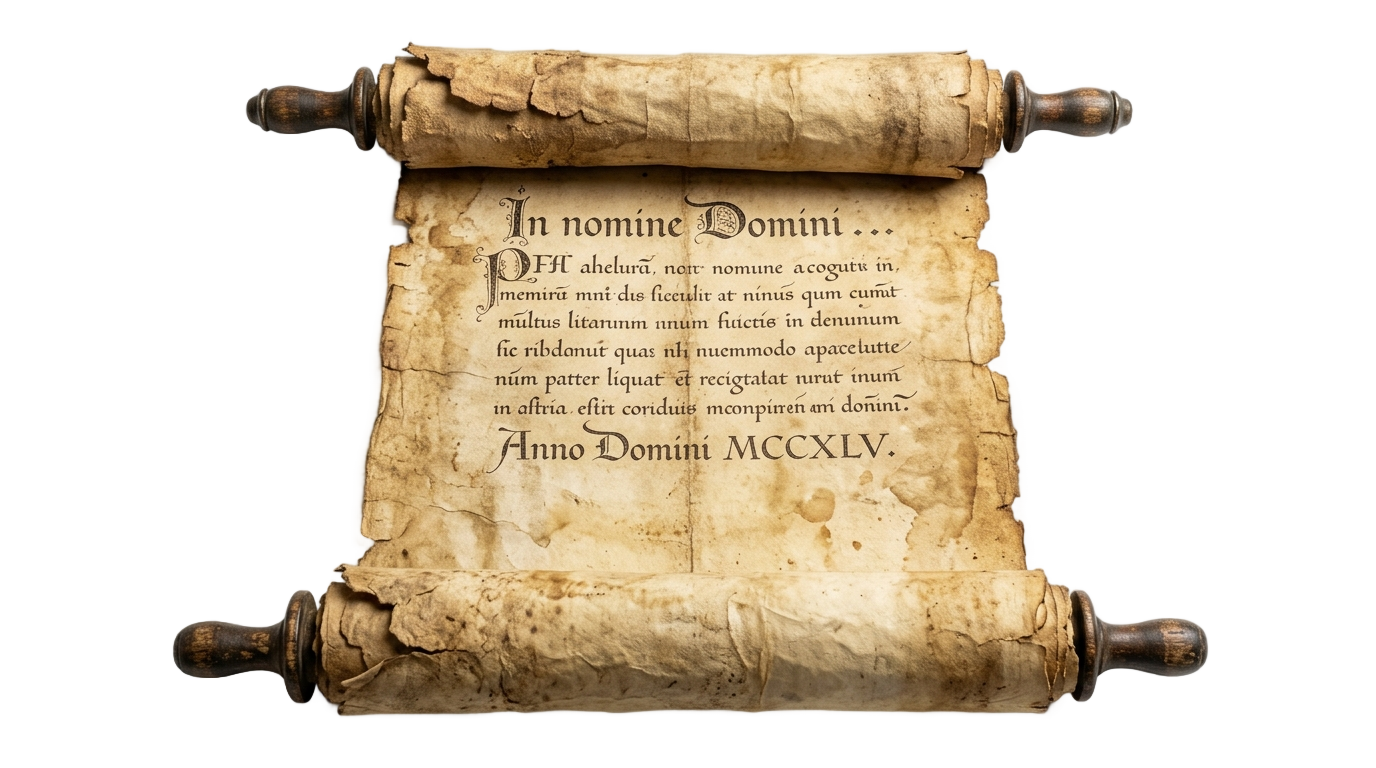 In nomine Domini ...
PFH ahelurā, non nomune acogutu in,
memirū mni dis siceulit at ninus qum cumāt
mūltus litarunm unum fuictis in denunum
sic ribdanut quas nh nuemmodo apacelutte
nūm patter liquat et recigtatat rurut inum
in astria. estit coriduis mconpirren am domini.
Anno Domini MCCXLV.